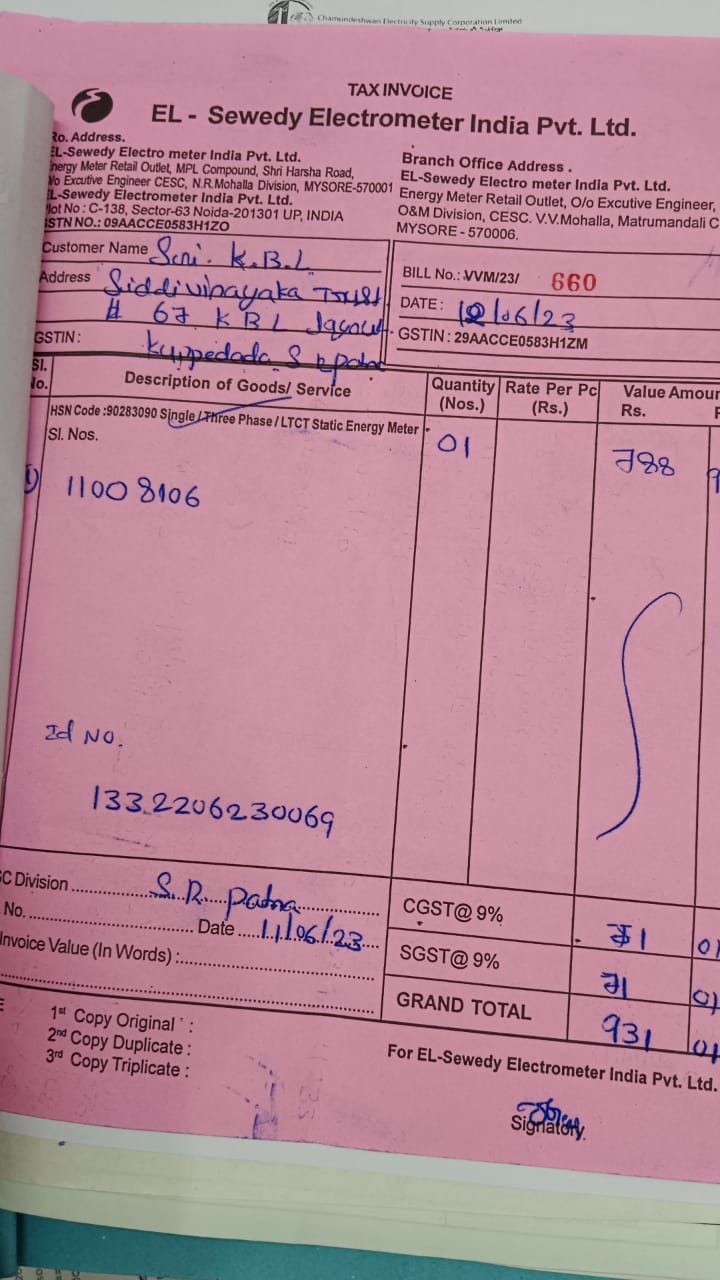 Chamundeshwari Electricity Supply Corporation Limited
TAX INVOICE
EL - Sewedy Electrometer India Pvt. Ltd.
Ro. Address.
EL-Sewedy Electro meter India Pvt. Ltd.
Energy Meter Retail Outlet, MPL Compound, Shri Harsha Road,
O/o Excutive Engineer CESC, N.R.Mohalla Division, MYSORE-570001
EL-Sewedy Electrometer India Pvt. Ltd.
Plot No : C-138, Sector-63 Noida-201301 UP, INDIA
GSTN NO.: 09AACCE0583H1ZO
Branch Office Address .
EL-Sewedy Electro meter India Pvt. Ltd.
Energy Meter Retail Outlet, O/o Excutive Engineer,
O&M Division, CESC. V.V.Mohalla, Matrumandali C
MYSORE - 570006.
Customer Name Sri. K.B.L
Address Siddivinayaka Trust
# 67 KBL
GSTIN :
BILL No.: VVM/23/ 660
DATE : 12/06/23
GSTIN : 29AACCE0583H1ZM
Sl. No. Description of Goods/ Service Quantity (Nos.) Rate Per Pc (Rs.) Value Amour Rs.
HSN Code :90283090 Single / Three Phase / LTCT Static Energy Meter 01 788
Sl. Nos.
1) 11008106
Id No.
1332206230069
SC Division S.R. Patna
No. Date 11/06/23
Invoice Value (In Words) :
CGST@ 9% 71 01
SGST@ 9% 71 01
GRAND TOTAL 931 01
1st Copy Original :
2nd Copy Duplicate :
3rd Copy Triplicate :
For EL-Sewedy Electrometer India Pvt. Ltd.
Signatory.